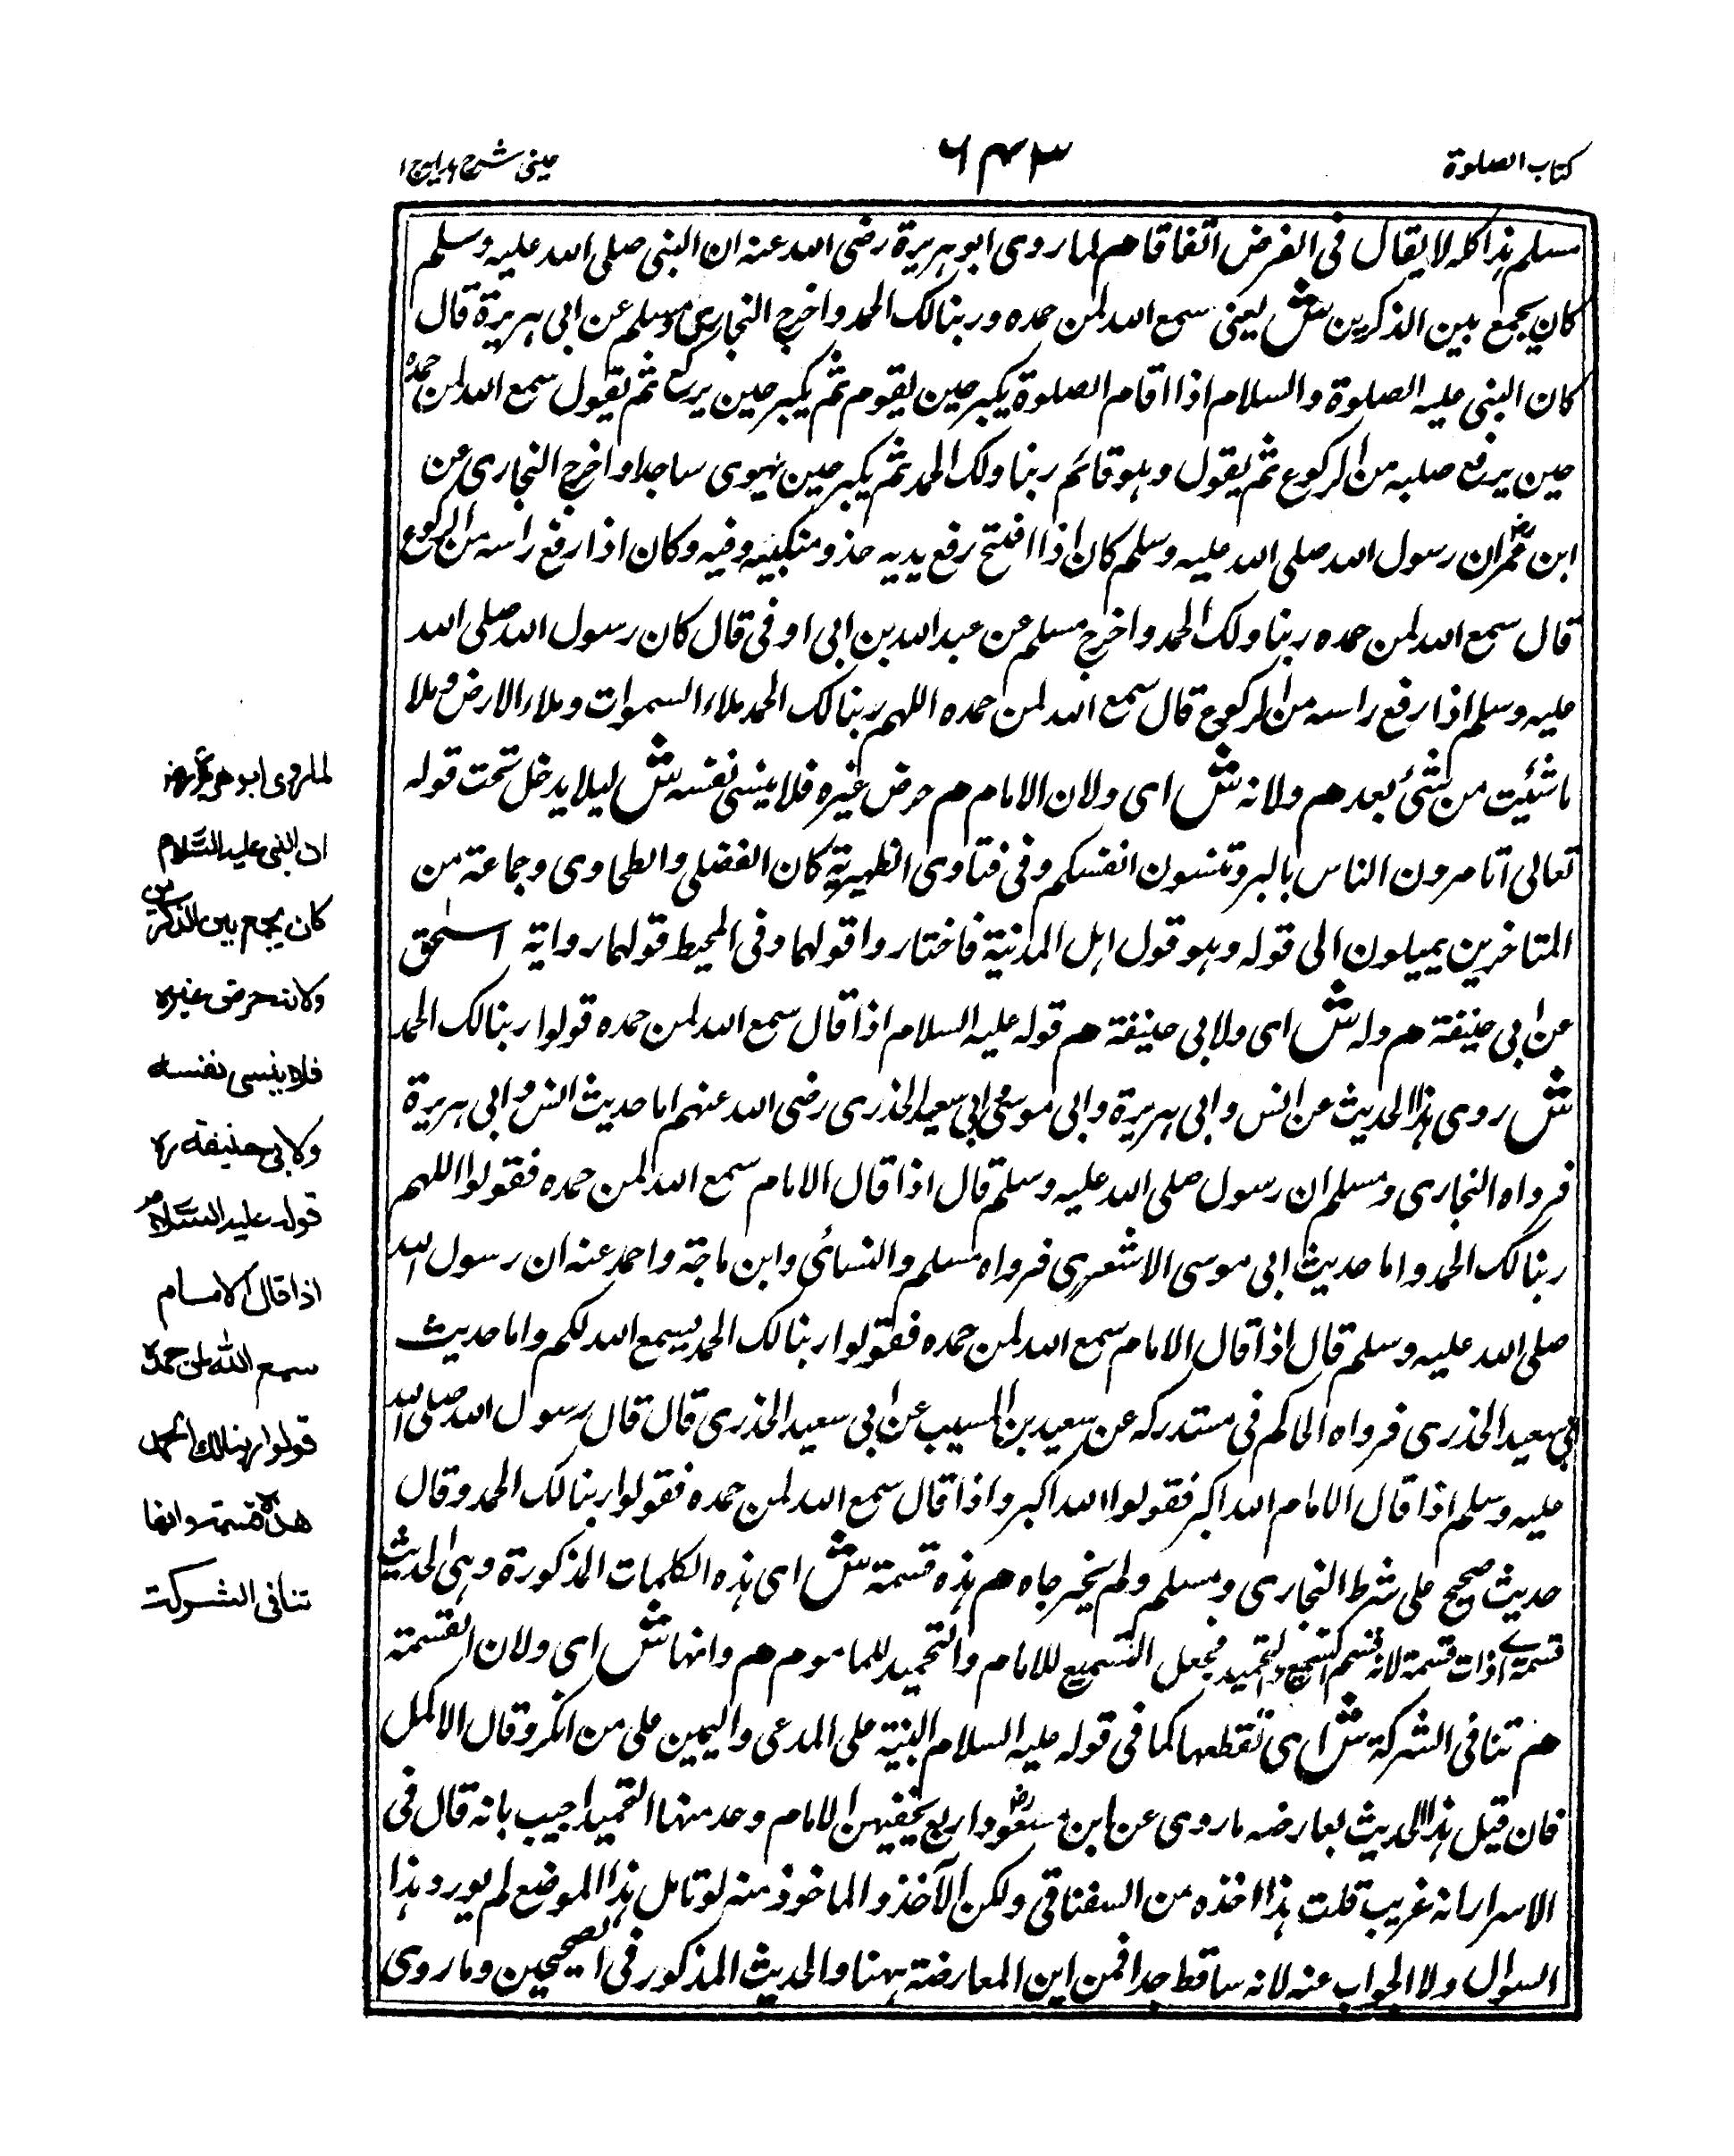 كتاب الصلوة
٦٤٣
عينى شرح هدايه ج ١
مسلم هذا كله لا يقال فى الفرض اتفاقا هم لما روى ابو هريرة رضى الله عنه ان النبى صلى الله عليه وسلم
كان يجمع بين الذكرين ش يعنى سمع الله لمن حمده وربنا لك الحمد واخرج البخارى ومسلم عن ابى هريرة قال
كان النبى عليه الصلوة والسلام اذا اقام الصلوة يكبر حين يقوم ثم يكبر حين يركع ثم يقول سمع الله لمن حمده
حين يرفع صلبه من الركوع ثم يقول وهو قائم ربنا ولك الحمد ثم يكبر حين يهوى ساجدا واخرج البخارى عن
ابن عمر رض ان رسول الله صلى الله عليه وسلم كان اذا افتتح رفع يديه حذو منكبيه وفيه وكان اذا رفع راسه من الركوع
قال سمع الله لمن حمده ربنا ولك الحمد واخرج مسلم عن عبد الله بن ابى اوفى قال كان رسول الله صلى الله
عليه وسلم اذا رفع راسه من الركوع قال سمع الله لمن حمده اللهم ربنا لك الحمد ملاء السموات وملاء الارض وملا
ما شئيت من شئ بعد هم ولانه ش اى ولان الامام هم حرض غيره فلا ينسى نفسه ش ليلا يدخل تحت قوله
تعالى اتامرون الناس بالبر وتنسون انفسكم وفى فتاوى الظهيرية كان الفضلى والطحاوى وجماعة من
المتاخرين يميلون الى قوله وهو قول اهل المدنية فاختاروا قولهما وفى المحيط قولهما رواية اسحق
عن ابى حنيفة هم وله ش اى ولابى حنيفة هم قوله عليه السلام اذا قال سمع الله لمن حمده قولوا ربنا لك الحمد
ش روى هذا الحديث عن انس وابى هريرة وابى موسى وابى سعيد الخدرى رضى الله عنهم اما حديث انس وابى هريرة
فرواه البخارى ومسلم ان رسول صلى الله عليه وسلم قال اذا قال الامام سمع الله لمن حمده فقولوا اللهم
ربنا لك الحمد واما حديث ابى موسى الاشعرى فرواه مسلم والنسائى وابن ماجة واحمد عنه ان رسول الله
صلى الله عليه وسلم قال اذا قال الامام سمع الله لمن حمده فقولوا ربنا لك الحمد يسمع الله لكم واما حديث
ابى سعيد الخدرى فرواه الحاكم فى مستدركه عن سعيد بن المسيب عن ابى سعيد الخدرى قال قال رسول الله صلى الله
عليه وسلم اذا قال الامام الله اكبر فقولوا الله اكبر واذا قال سمع الله لمن حمده فقولوا ربنا لك الحمد وقال
حديث صحيح على شرط البخارى ومسلم ولم يخرجاه هم هذه قسمة ش اى هذه الكلمات المذكورة وهى الحديث
قسمة اى ذات قسمة لانه قسم التسميع والتحميد فجعل التسميع للامام والتحميد للماموم هم وانها ش اى ولان القسمة
هم تنافى الشركة ش اى تقطعها كما فى قوله عليه السلام البنية على المدعى واليمين على من انكر وقال الاكمل
فان قيل هذا الحديث يعارضه ما روى عن ابن مسعود رض واربع يخفيهن الامام وعد منها التحميد اجيب بانه قال فى
الاسرار انه غريب قلت هذا اخذه من السفناقى ولكن الآخذ والماخوذ منه لو تامل هذا الموضع لم يورد هذا
السوال ولا الجواب عنه لانه ساقط جدا فمن اين المعارضة ههنا والحديث المذكور فى الصحيحين وما روى
لما روى ابو هريرة رض
ان النبى عليه السلام
كان يجمع بين الذكرين
ولانه حرض غيره
فلا ينسى نفسه
ولابى حنيفة ره
قوله عليه السلام
اذا قال الامام
سمع الله لمن حمده
قولوا ربنا لك الحمد
هذه قسمة وانها
تنافى الشركت